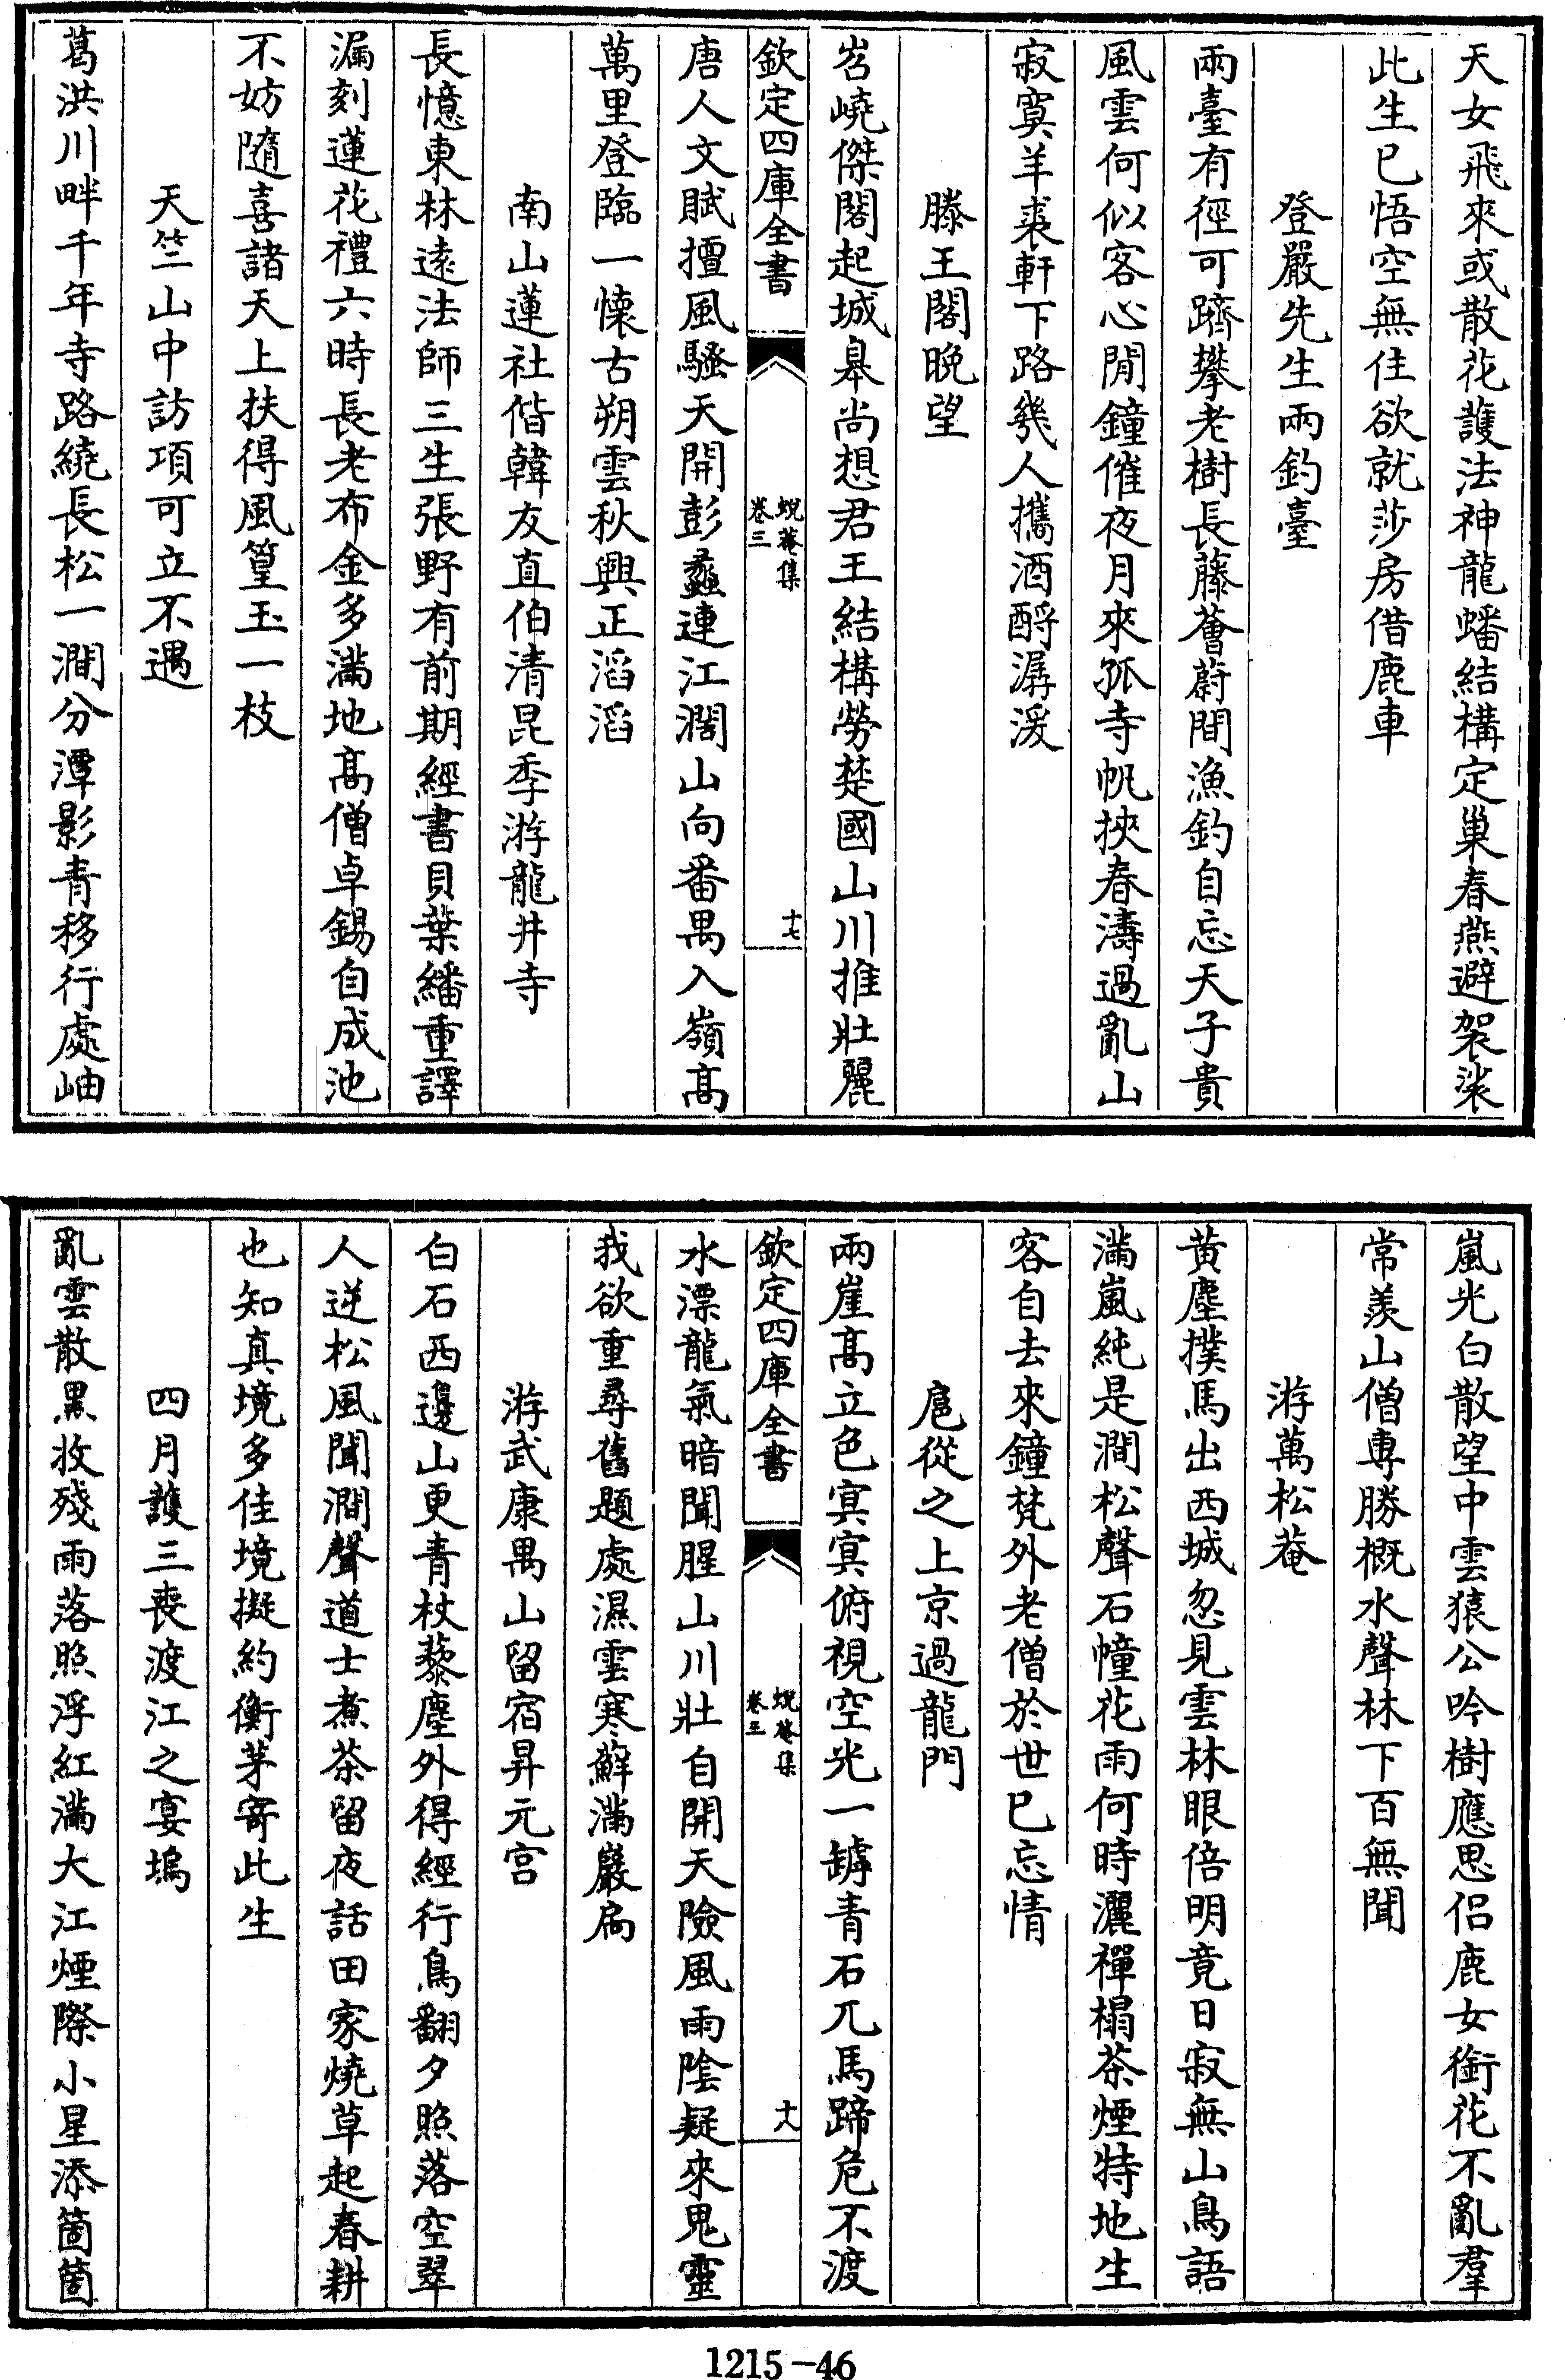 天女飛來或散花護法神龍蟠結構定巢春燕避袈裟
此生已悟空無住欲就莎房借鹿車
登嚴先生兩釣臺
兩臺有徑可躋攀老樹長藤薈蔚間漁釣自忘天子貴
風雲何似客心閒鐘催夜月來孤寺帆挾春濤過亂山
寂寞羊裘軒下路幾人攜酒酹潺湲
滕王閣晚望
岧嶢傑閣起城皋尚想君王結構勞楚國山川推壯麗
欽定四庫全書
蛻菴集
卷三
十七
唐人文賦擅風騷天開彭蠡連江濶山向番禺入嶺髙
萬里登臨一懷古朔雲秋興正滔滔
南山蓮社偕韓友直伯清昆季游龍井寺
長憶東林遠法師三生張野有前期經書貝葉繙重譯
漏刻蓮花禮六時長老布金多滿地髙僧卓錫自成池
不妨隨喜諸天上扶得風篁玉一枝
天竺山中訪項可立不遇
葛洪川畔千年寺路繞長松一澗分潭影青移行處岫
嵐光白散望中雲猿公吟樹應思侣鹿女銜花不亂羣
常羨山僧專勝概水聲林下百無聞
游萬松菴
黄塵撲馬出西城忽見雲林眼倍明竟日寂無山鳥語
滿嵐純是澗松聲石幢花雨何時灑禪榻茶煙特地生
客自去來鐘梵外老僧於世已忘情
扈從之上京過龍門
兩崖髙立色冥冥俯視空光一罅青石兀馬蹄危不渡
欽定四庫全書
蛻菴集
卷三
十八
水漂龍氣暗聞腥山川壯自開天險風雨陰疑來鬼靈
我欲重尋舊題處濕雲寒蘚滿巖扃
游武康禺山留宿昇元宫
白石西邊山更青杖藜塵外得經行鳥翻夕照落空翠
人逆松風聞澗聲道士煮茶留夜話田家燒草起春耕
也知真境多佳境擬約衡茅寄此生
四月護三喪渡江之宴塢
亂雲散黒收殘雨落照浮紅滿大江煙際小星添箇箇
1215-46